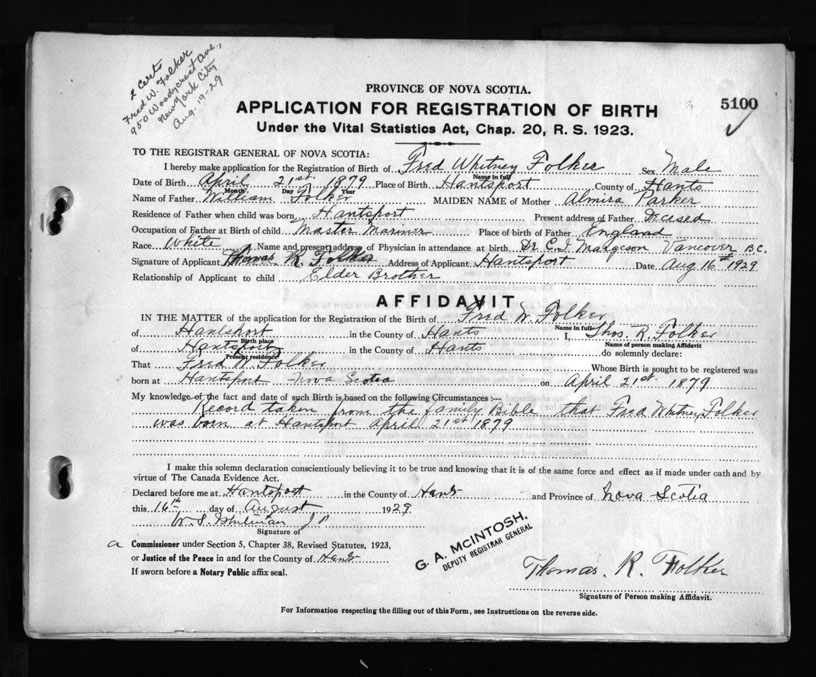 2 Certs
Fred W. Folker
950 Woodycrest Ave.,
New York City
Aug. 19-29
PROVINCE OF NOVA SCOTIA.
APPLICATION FOR REGISTRATION OF BIRTH
5100
Under the Vital Statistics Act, Chap. 20, R. S. 1923.
TO THE REGISTRAR GENERAL OF NOVA SCOTIA:
I hereby make application for the Registration of Birth of Fred Whitney Folker Sex Male
Name in full
Date of Birth April 21st 1879 Place of Birth Hantsport County of Hants
Month Day Year
Name of Father William Folker MAIDEN NAME of Mother Almira Parker
Residence of Father when child was born Hantsport Present address of Father Deceased
Occupation of Father at Birth of child Master Mariner Place of birth of Father England
Race White Name and present address of Physician in attendance at birth Dr. C. I. Margeson Vancover B.C.
Signature of Applicant Thomas R. Folker Address of Applicant Hantsport Date Aug 16th 1929
Relationship of Applicant to child Elder Brother
AFFIDAVIT
IN THE MATTER of the application for the Registration of the Birth of Fred W. Folker
Name in full
of Hantsport in the County of Hants I, Thos. R. Folker
Birth place Name of person making Affidavit
of Hantsport in the County of Hants do solemnly declare:
Present residence
That Fred W. Folker Whose Birth is sought to be registered was
born at Hantsport Nova Scotia on April 21st 1879
My knowledge of the fact and date of such Birth is based on the following Circumstances:—
Record taken from the family Bible that Fred Whitney Folker
was born at Hantsport April 21st 1879
I make this solemn declaration conscientiously believing it to be true and knowing that it is of the same force and effect as if made under oath and by
virtue of The Canada Evidence Act.
Declared before me at Hantsport in the County of Hants and Province of Nova Scotia
this 16th day of August 1929
W. S. JP
Signature of
a Commissioner under Section 5, Chapter 38, Revised Statutes, 1923,
or Justice of the Peace in and for the County of Hants
If sworn before a Notary Public affix seal.
G. A. McINTOSH,
DEPUTY REGISTRAR GENERAL
Thomas. R. Folker
Signature of Person making Affidavit.
For Information respecting the filling out of this Form, see Instructions on the reverse side.